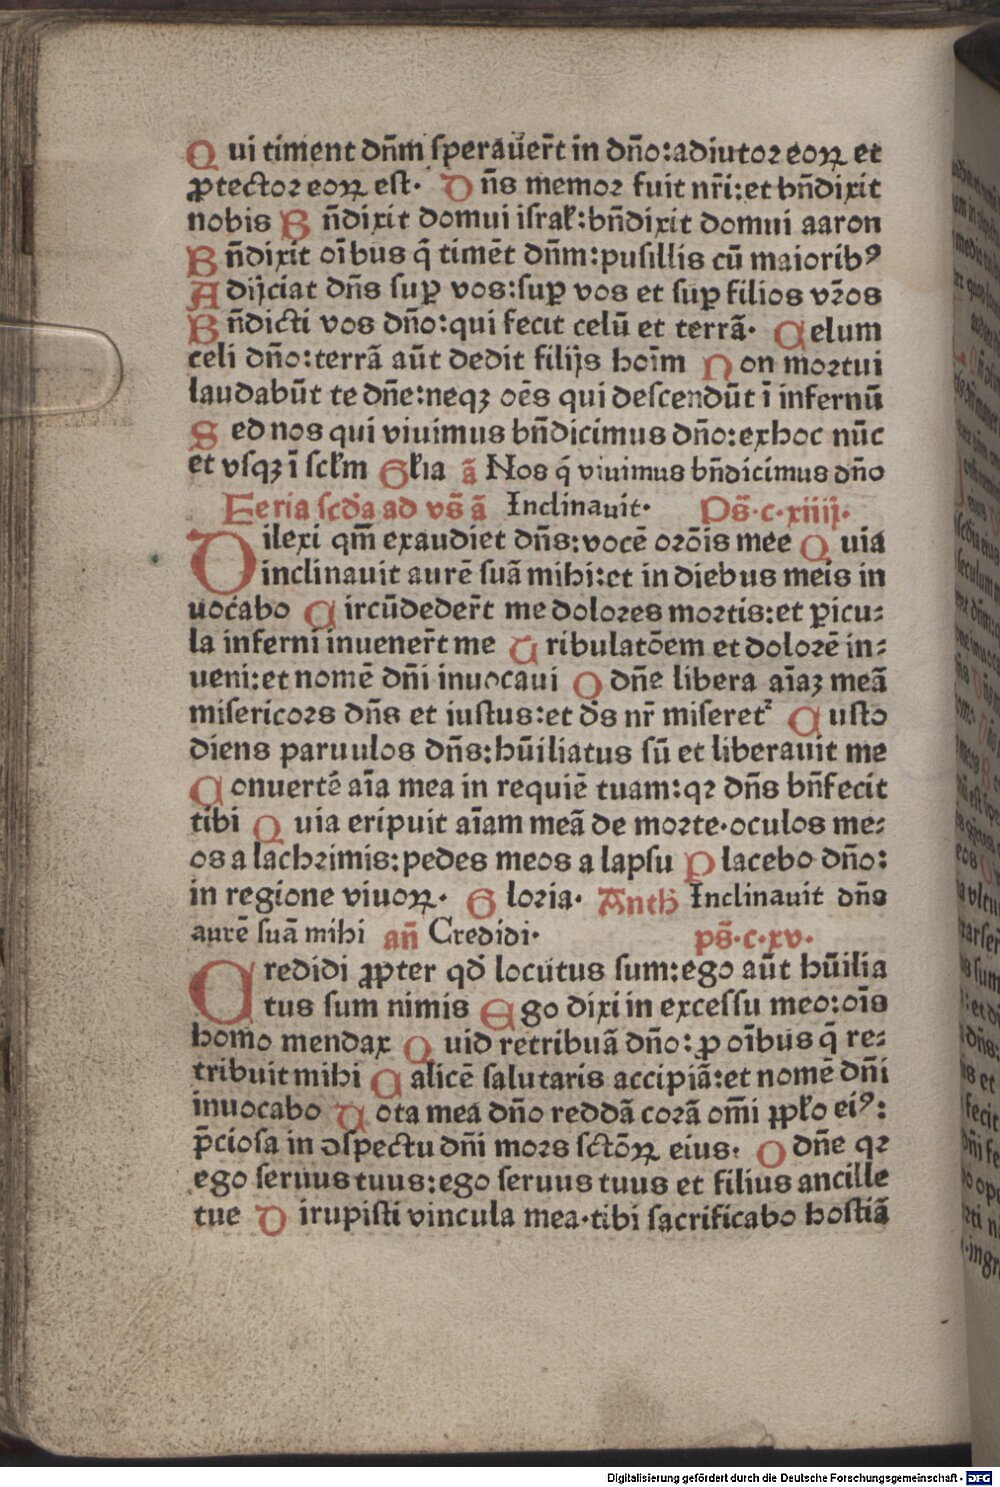 Qui timent dn̄m sperauer̄t in dn̄o: adiutoꝛ eoꝝ et
ꝓtectoꝛ eoꝝ est. Dn̄s memoꝛ fuit nr̄i: et bn̄dixit
nobis Bn̄dixit domui israk̄: bn̄dixit domui aaron
Bn̄dixit oībus q̄ timēt dn̄m: pusillis cū maioribꝰ
Adijciat dn̄s suꝑ vos: suꝑ vos et suꝑ filios vr̄os
Bn̄dicti vos dn̄o: qui fecit celū et terrā. Celum
celi dn̄o: terrā aūt dedit filijs hoīm Non moꝛtui
laudabūt te dn̄e: neqꝫ oēs qui descendūt ī infernū
Sed nos qui viuimus bn̄dicimus dn̄o: ex hoc nūc
et vsqꝫ ī sck̄m Gk̄ia ā Nos q̄ viuimus bn̄dicimus dn̄o
Feria scd̄a ad vs̄ ā Inclinauit. Ps̄.c.xiiij.
Dilexi qm̄ exaudiet dn̄s: vocē oꝛōis mee Quia
inclinauit aurē suā mihi: et in diebus meis in
uocabo Circūdeder̄t me doloꝛes moꝛtis: et ꝑicu⸗
la inferni inuener̄t me Tribulatōem et doloꝛē in⸗
ueni: et nomē dn̄i inuocaui O dn̄e libera aīaꝫ meā
misericoꝛs dn̄s et iustus: et ds̄ nr̄ miseret᷑ Custo
diens paruulos dn̄s: hūiliatus sū et liberauit me
Conuertē aīa mea in requiē tuam: qꝛ dn̄s bn̄fecit
tibi Quia eripuit aīam meā de moꝛte. oculos me⸗
os a lachꝛimis: pedes meos a lapsu Placebo dn̄o:
in regione viuoꝝ. Gloꝛia. Anth̄ Inclinauit dn̄s
aurē suā mihi an̄ Credidi. ps̄.c.xv.
Credidi ꝓpter qd̄ locutus sum: ego aūt hūilia
tus sum nimis Ego dixi in excessu meo: oīs
homo mendax Quid retribuā dn̄o: ꝓ oībus q̄ re⸗
tribuit mihi Calicē salutaris accipiā: et nomē dn̄i
inuocabo Uota mea dn̄o reddā coꝛā om̄i ꝓpk̄o eiꝰ:
p̄ciosa in ↄspectu dn̄i moꝛs sctōꝝ eius. O dn̄e qꝛ
ego seruus tuus: ego seruus tuus et filius ancille
tue Dirupisti vincula mea. tibi sacrificabo hostiā
Digitalisierung gefördert durch die Deutsche Forschungsgemeinschaft - DFG